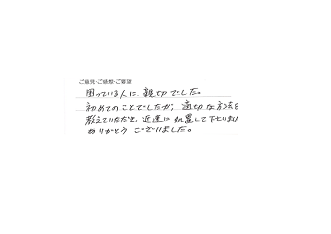 ご意見・ご感想・ご要望
困っている人に、親切でした。
初めてのことでしたが、適切な方法を
教えていただき、迅速に処置して下さいまし
ありがとうございました。